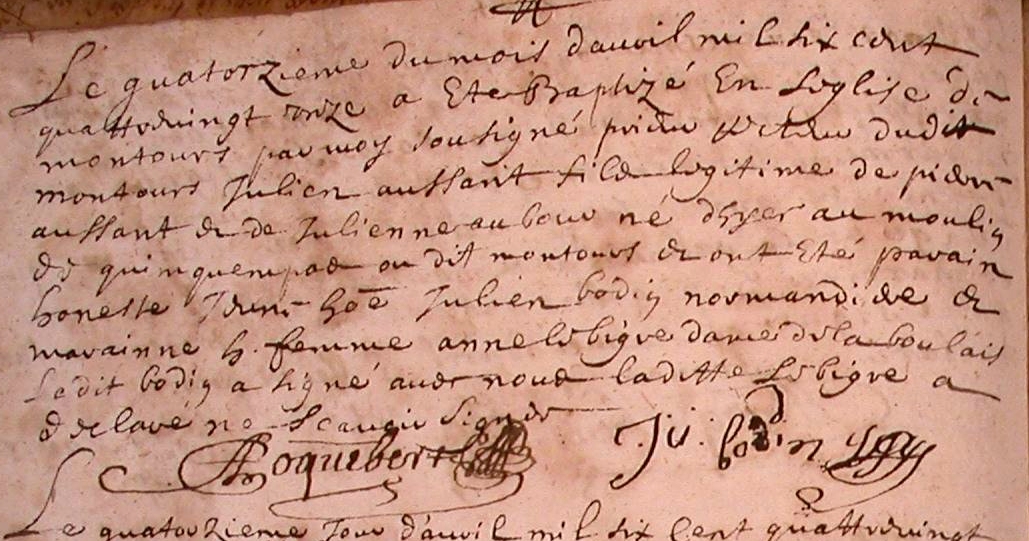 Le quatorzieme du mois dauril mil six cent
quattreuingt onze a Ete Baptizé En Leglise de
montours par moy sousigné prieur Recteur dudit
montours Julien aussant fils legitime de pierre
aussant & de Julienne aubour né dhyer au moulin
de quinquempas au dit montours & ont Eté parain
honeste Jeune hoē Julien bodin normandiere &
marainne h. femme anne lebigre dame de la boulais
Ledit bodin a signé auec nous laditte Lebigre a
declaré ne scauoir signer
Roquebert Ju. bodin
Le quatorzieme Jour d'auril mil six cent quattreuingt